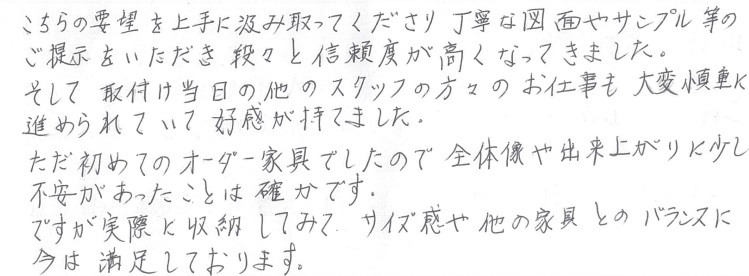 こちらの要望を上手に汲み取ってくださり丁寧な図面やサンプル等の
ご提示をいただき段々と信頼度が高くなってきました。
そして取付け当日の他のスタッフの方々のお仕事も大変慎重に
進められていて好感が持てました。
ただ初めてのオーダー家具でしたので全体像や出来上がりに少し
不安があったことは確かです。
ですが実際に収納してみて、サイズ感や他の家具とのバランスに
今は満足しております。